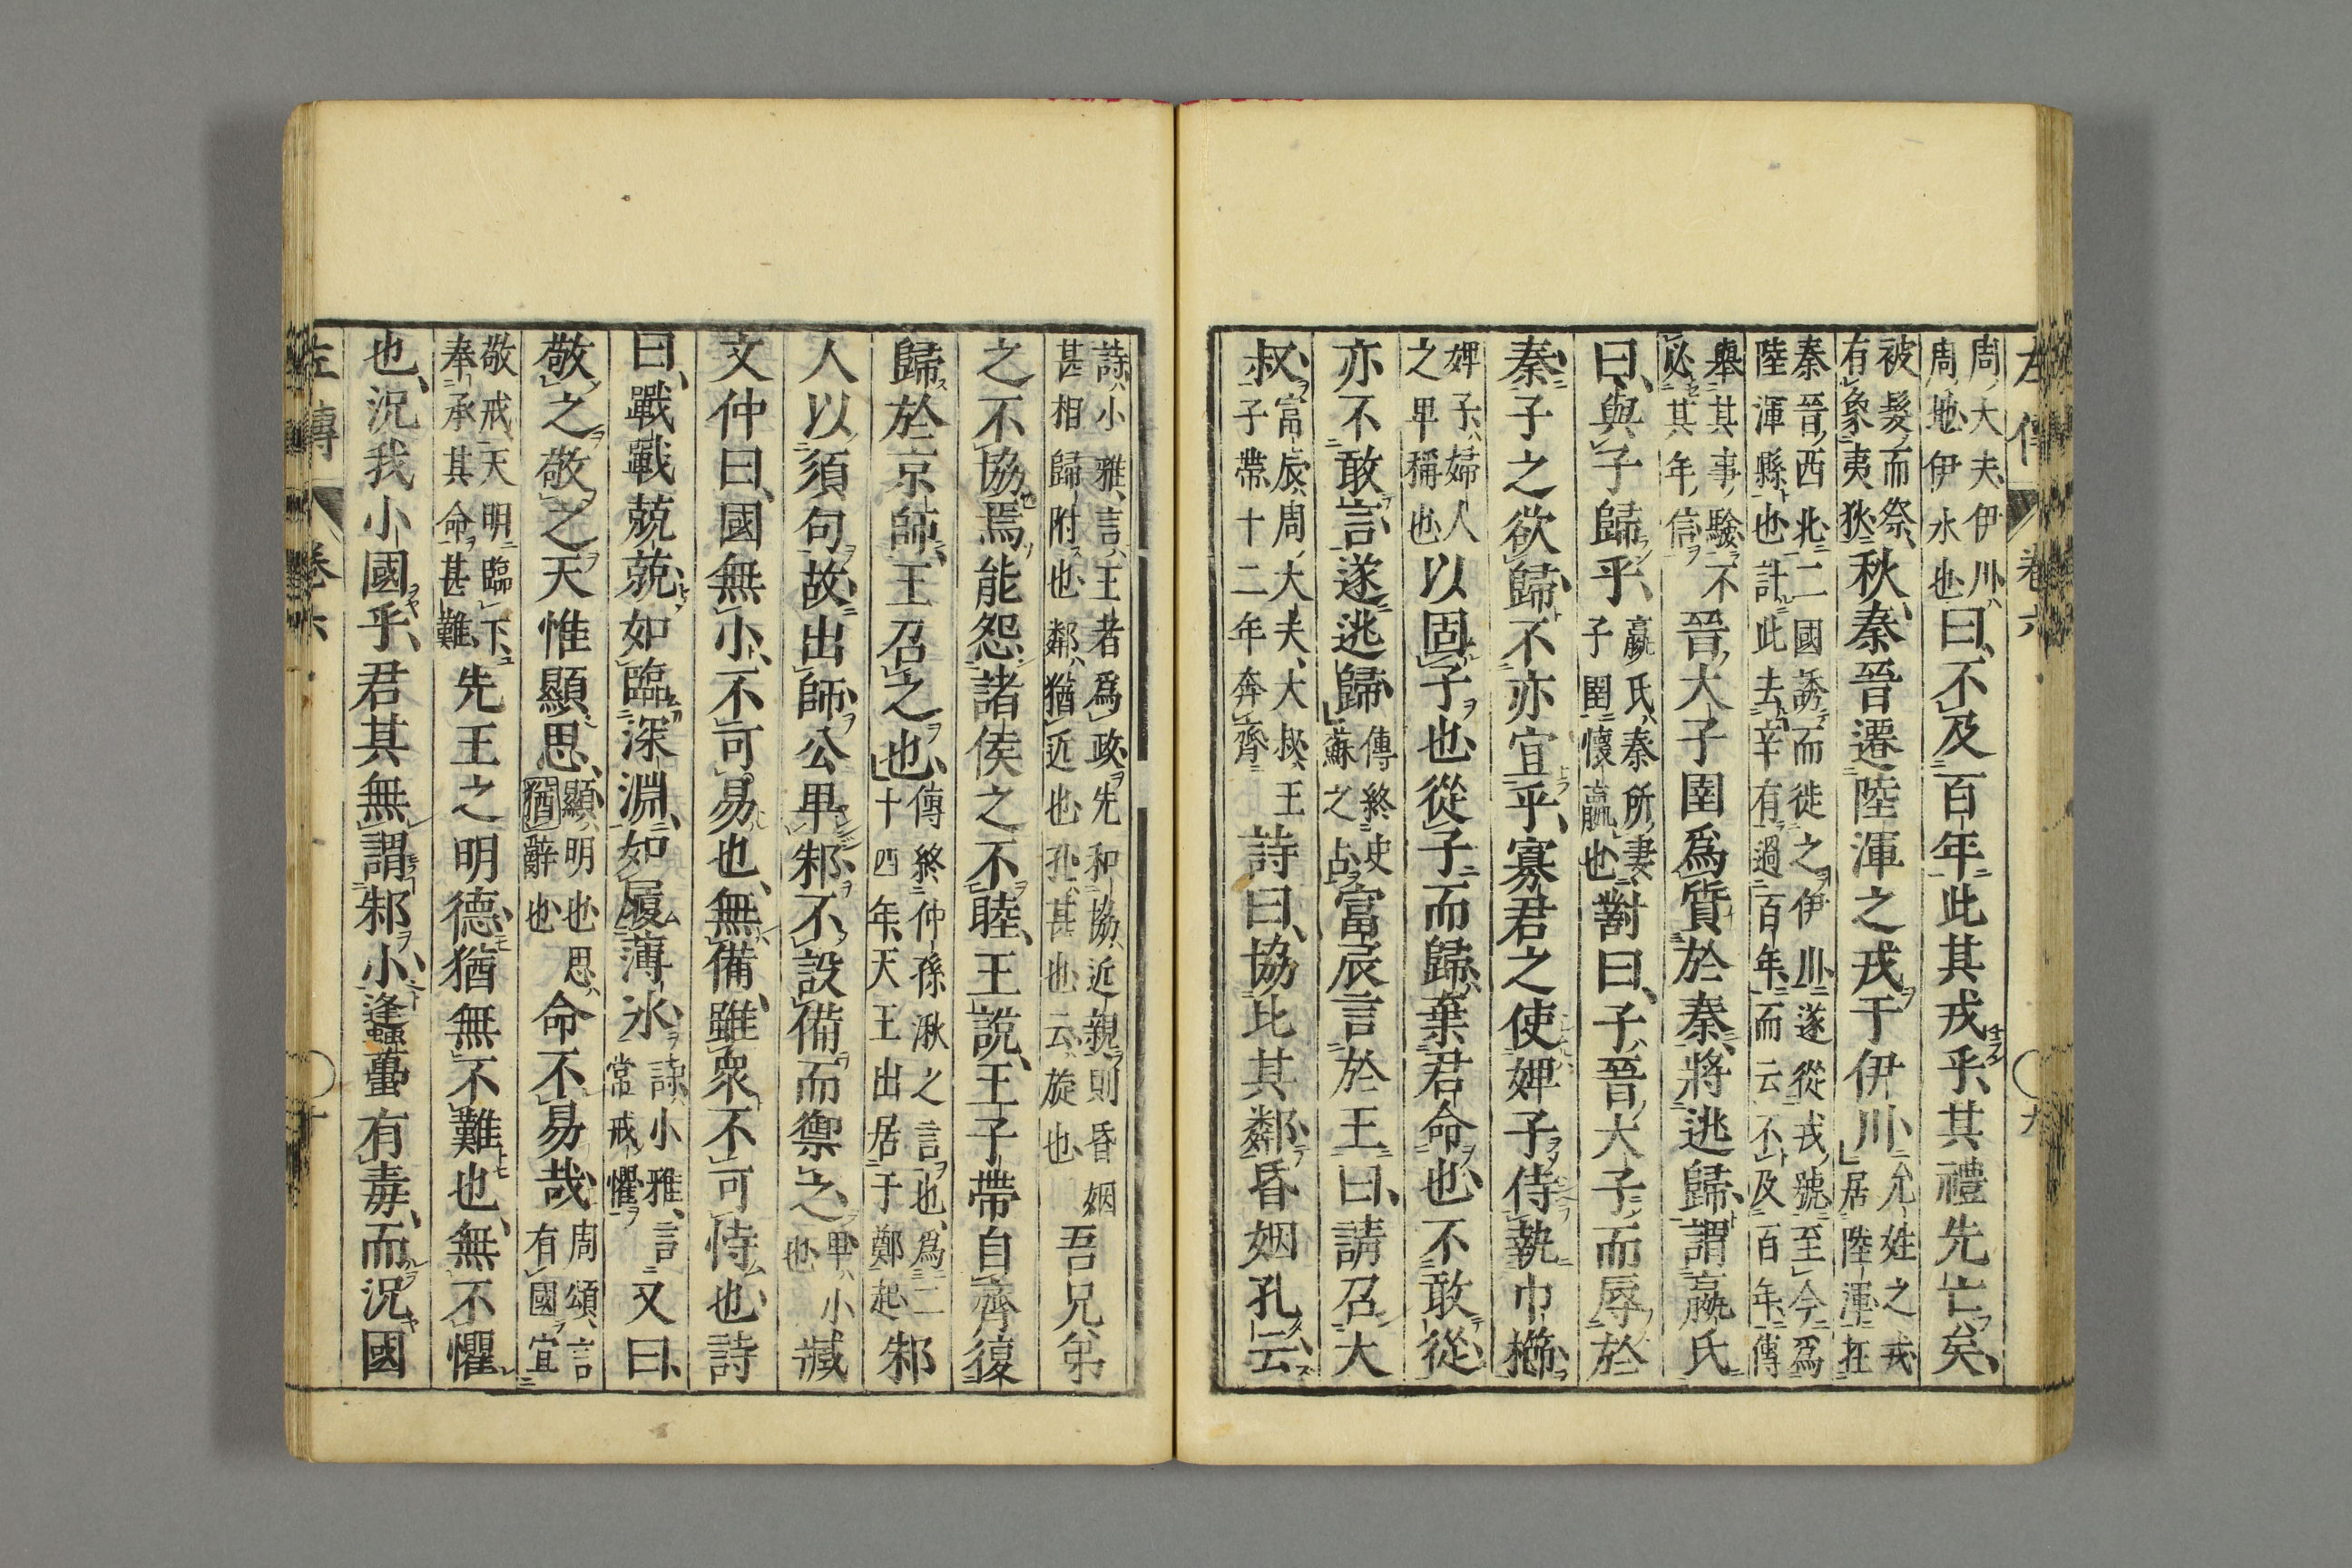 左傳 卷六 九
周大夫伊川
周地伊水也
曰、不及百年此其戎乎、其禮先亡矣、
被髮而祭
有象夷狄
秋、秦晉遷陸渾之戎于伊川
允姓之戎
居陸渾在
秦晉西北二國誘而徙之伊川遂從戎號至今爲
陸渾縣也計此去辛有過百年而云不及百年傳
舉其事驗不
必其年信
晉大子圉爲質於秦、將逃歸、謂嬴氏
曰、與子歸乎、
嬴氏秦所妻
子圉懷嬴也
對曰、子晉大子而辱於
秦、子之欲歸不亦宜乎、寡君之使婢子侍執巾櫛、
婢子婦人
之卑稱也
以固子也、從子而歸、棄君命也、不敢從
亦不敢言、遂逃歸
傳終史
蘇之占
富辰言於王曰、請召大
叔、
富辰周大夫、大叔王
子帶十二年奔齊
詩曰、協比其鄰昏姻孔云
詩小雅、言王者爲政先和協近親則昏姻
甚相歸附也鄰猶近也孔甚也云旋也
吾兄弟
之不協焉能怨諸侯之不睦、王說、王子帶自齊復
歸於京師、王召之也、
傳終仲孫湫之言也、爲二
十四年天王出居于鄭起
邾
人以須句故出師、公卑邾、不設備而禦之、
卑小
也
臧
文仲曰、國無小、不可易也、無備、雖衆不可恃也、詩
曰、戰戰兢兢、如臨深淵、如履薄冰、
詩小雅、言
常戒懼
又曰、
敬之敬之天惟顯思、
顯明也思
猶辭也
命不易哉、
周頌、言
有國宜
敬戒天明臨下
奉承其命甚難
先王之明德、猶無不難也、無不懼
也、況我小國乎、君其無謂邾小、蠭蠆有毒、而況國
左傳 卷六 十